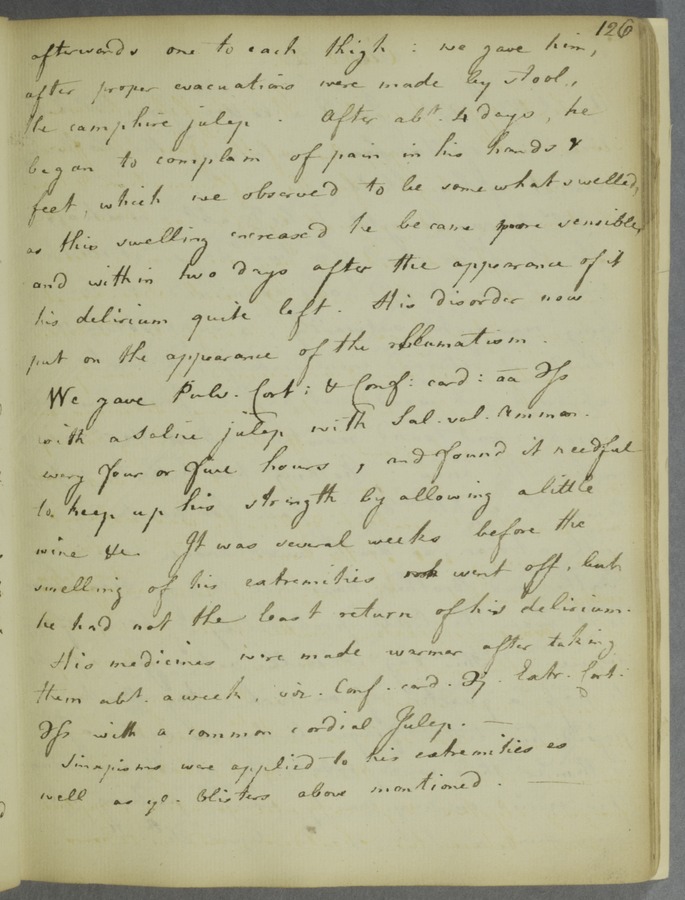 126
afterwards one to each thigh : we gave him,
after proper evacuations were made by stool,
the camphire julep . After abt. 4 days, he
began to complain of pain in his hands &
feet, which we observed to be some what swelled,
as this swelling increased he became more sensible,
and within two days after the appearance of it
his delirium quite left. His disorder now
put on the appearance of the rheumatism .
We gave Pulv. Cort : & Conf : card : aa ʒſs
with a saline julep with Sal. vol. Ammon .
every four or five hours , and found it needful
to keep up his strength by allowing a little
wine &c. It was several weeks before the
swelling of his extremities went off, but
he had not the least return of his delirium .
His medicines were made warmer after taking
them abt. a week, viz . Conf . card . ʒj . Extr . Cort :
ʒſs with a common cordial Julep . —
Sinapisms were applied to his extremities as
well as ye. blisters above mentioned . —